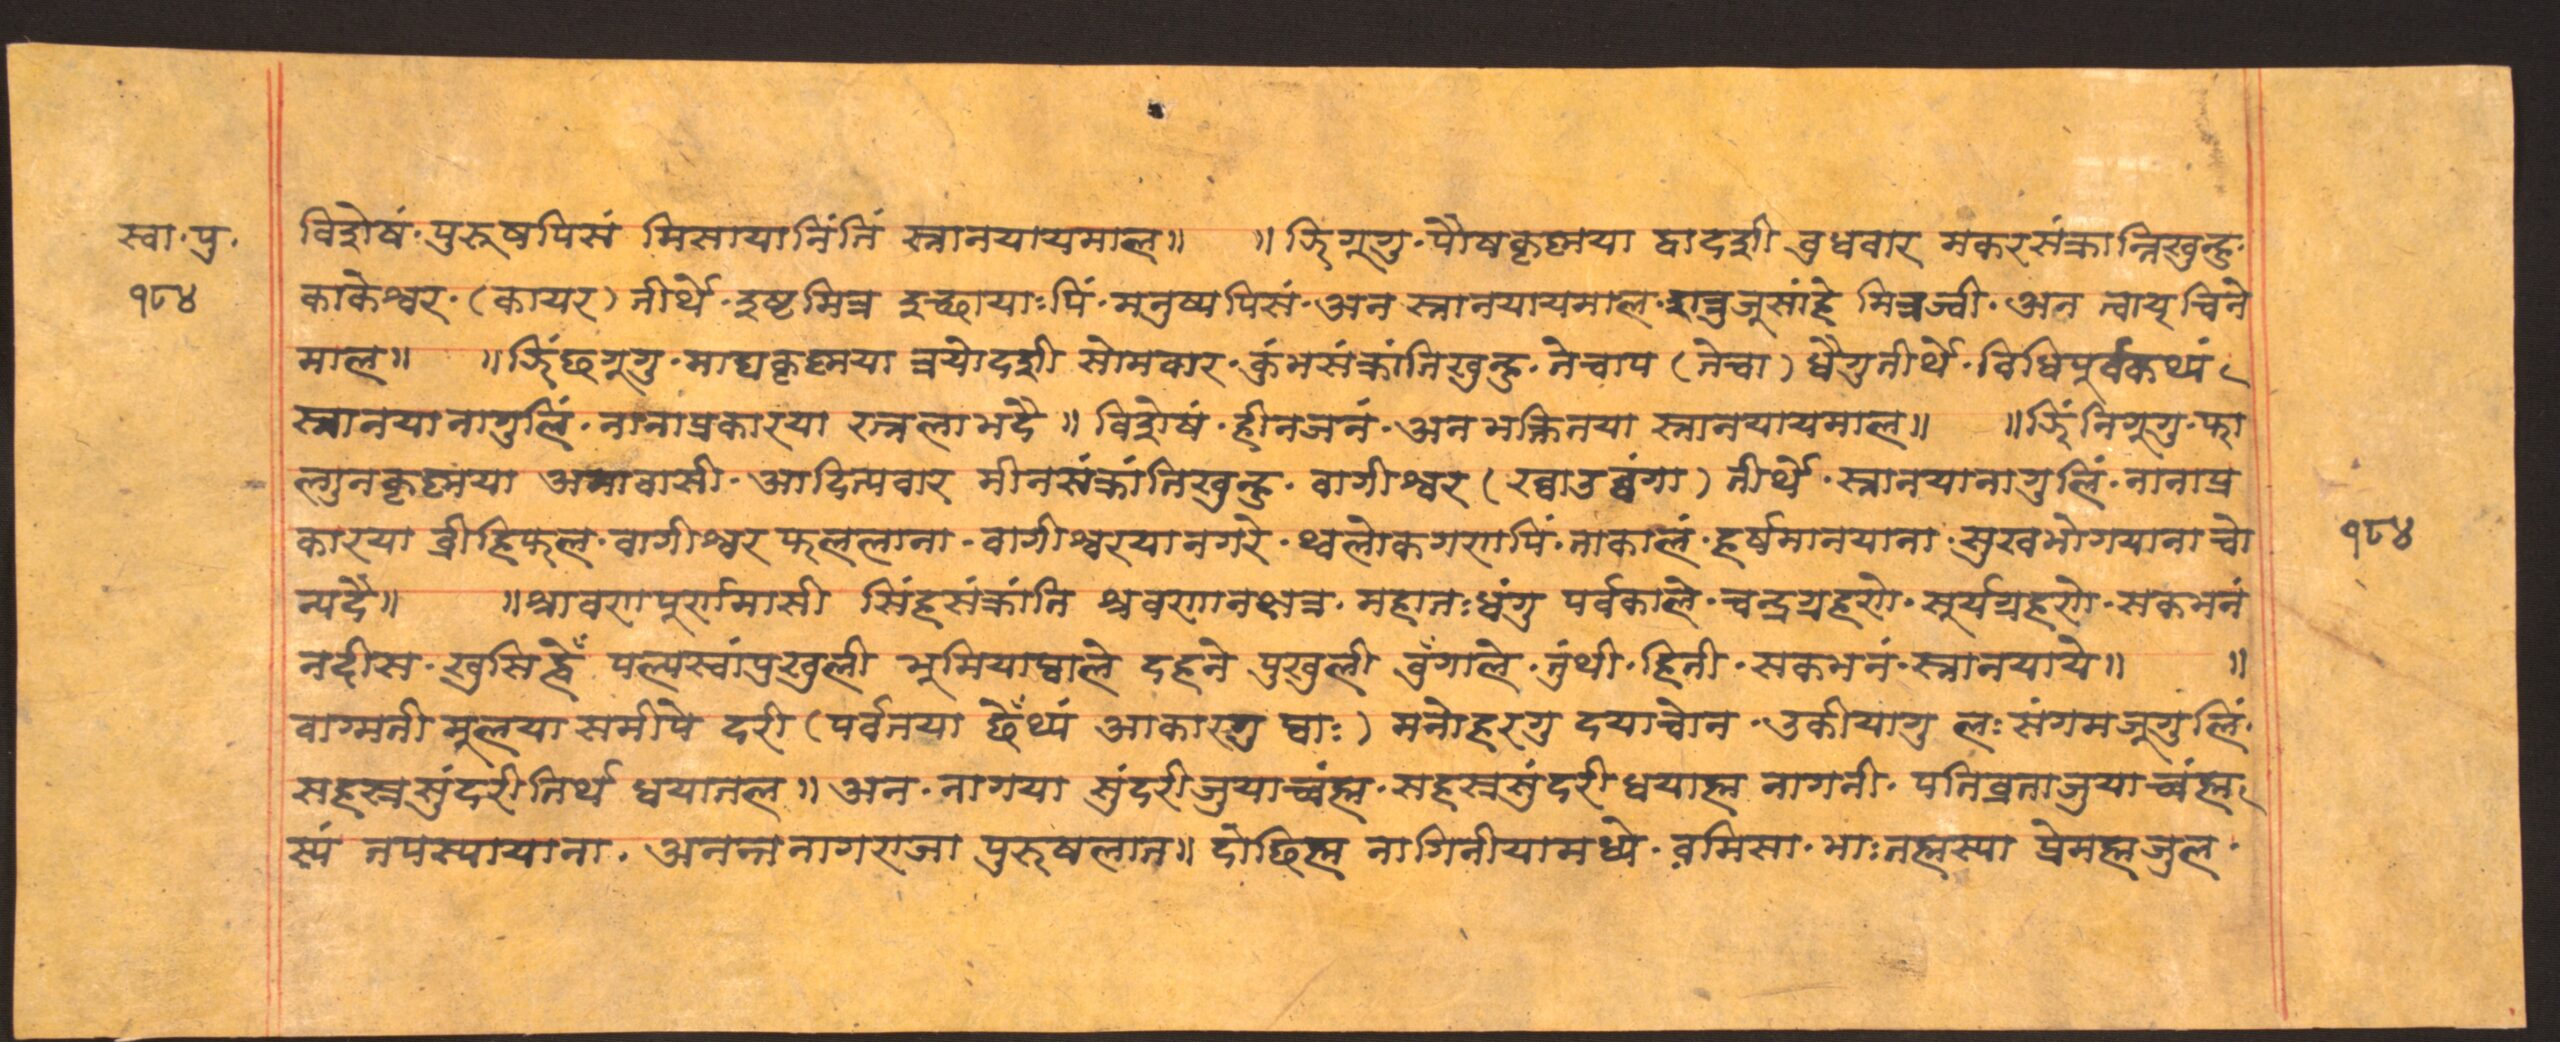 स्वा॰ प्र॰
१८४
विशेषं॰ पुरुषपिसं मिसायानिंतिं स्नानयायमाल॥ ॥ झिगूगु॰ पौषकृष्णया द्वादशी बुधवार मकरसंक्रान्तिखुन्हु॰
काकेश्वर॰ (कायर) तीर्थे॰ दुष्टमित्र दुच्छायाःपिं॰ मनुष्यपिसं॰ अन स्नानयायमाल॰ शत्रुजुसांहे मित्रज्वी॰ अन त्वायचिने
माल॥ ॥ झिंछगूगु॰ माघकृष्णया त्रयोदशी सोमवार॰ कुंभसंक्रांतिखुन्हु॰ तेचाप (तेचा) धैगुतीर्थे॰ विधिपूर्वकथ्यं
स्नानयानागुलिं॰ नानाप्रकारया रत्नलाभदै॥ विशेषं॰ हीनजनं॰ अनभक्तिनया स्नानयायमाल॥ ॥ झिंनिगूगु॰ फा
ल्गुनकृष्णया अमावासी॰ आदित्यवार मीनसंक्रांतिखुन्हु॰ वागीश्वर तीर्थे॰ स्नानयानागुलिं॰ नानाप्र
कारया ब्रीहिफल॰ वागीश्वर फललाना॰ वागीश्वरयानगरे॰ थ्वलोकगणपिं॰ ताकालं॰ हर्षमानयाना॰ सुखभोगयानाच्वो
न्यदै॥ ॥ श्रावणपूर्णमासी सिंहसंक्रांति श्रवणनक्षत्र॰ महातःधंगु पर्वकाले॰ चन्द्रग्रहणे॰ सूर्यग्रहणे॰ सकभनं
नदीस॰ खुसि पल्यस्वांपुखुली भूमियाघाले दहने पुखुली तुंथी॰ हिती॰ सकभनं॰ स्नानयाये॥ ॥
वाग्मती मूलया समीपे दरी (पर्वतया छेँथ्यं आकारगु घाः) मनोहरगु दयाच्वोन॰ उकीयागु लः संगमजूगुलिं॰
सहस्रसुंदरीतिर्थ धयातल॥ अन॰ नागया सुंदरीजुयाच्वंह्म॰ सहस्रसुंदरीधयाह्म नागनी॰ पतिब्रताजुयाच्वंह्म
स्यं तपस्यायाना॰ अनन्तनागराजा पुरुषलात॥ दोछिह्म नागिनीयामध्ये॰ वमिसा॰ भाःतह्मस्या प्रेमह्मजुल॰
१८४